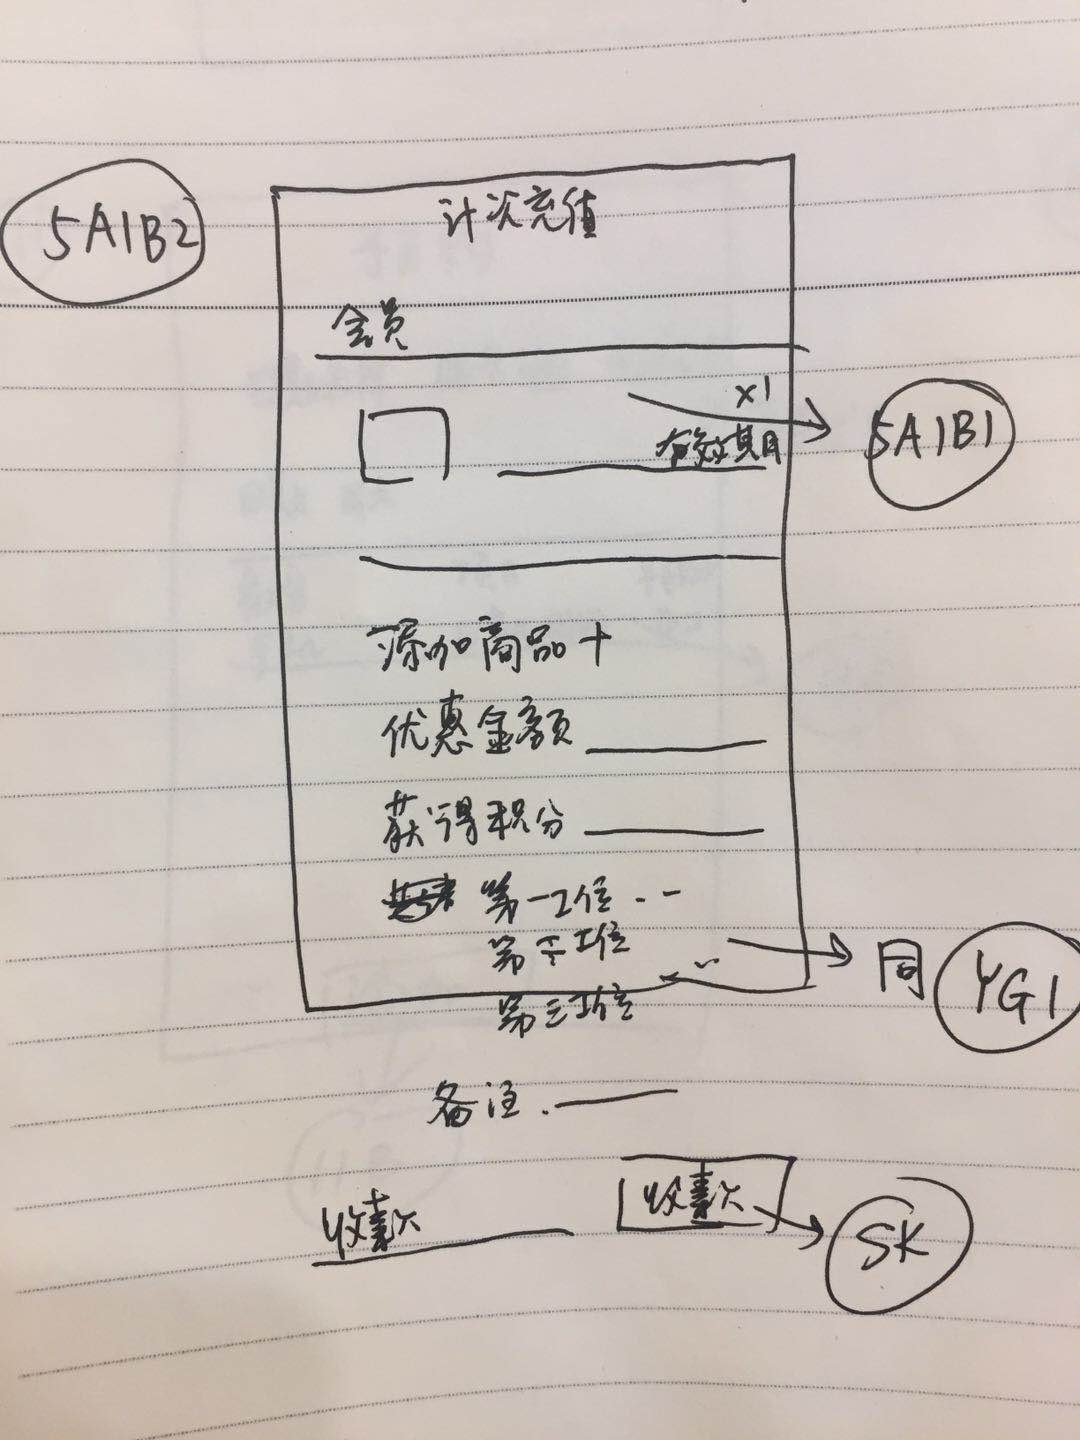 5A1B2
计次充值
会员
x1
有效期
5A1B1
添加商品+
优惠金额
获得积分
第一工位
第二工位
同 YG1
第三工位
备注
收款 收款
SK